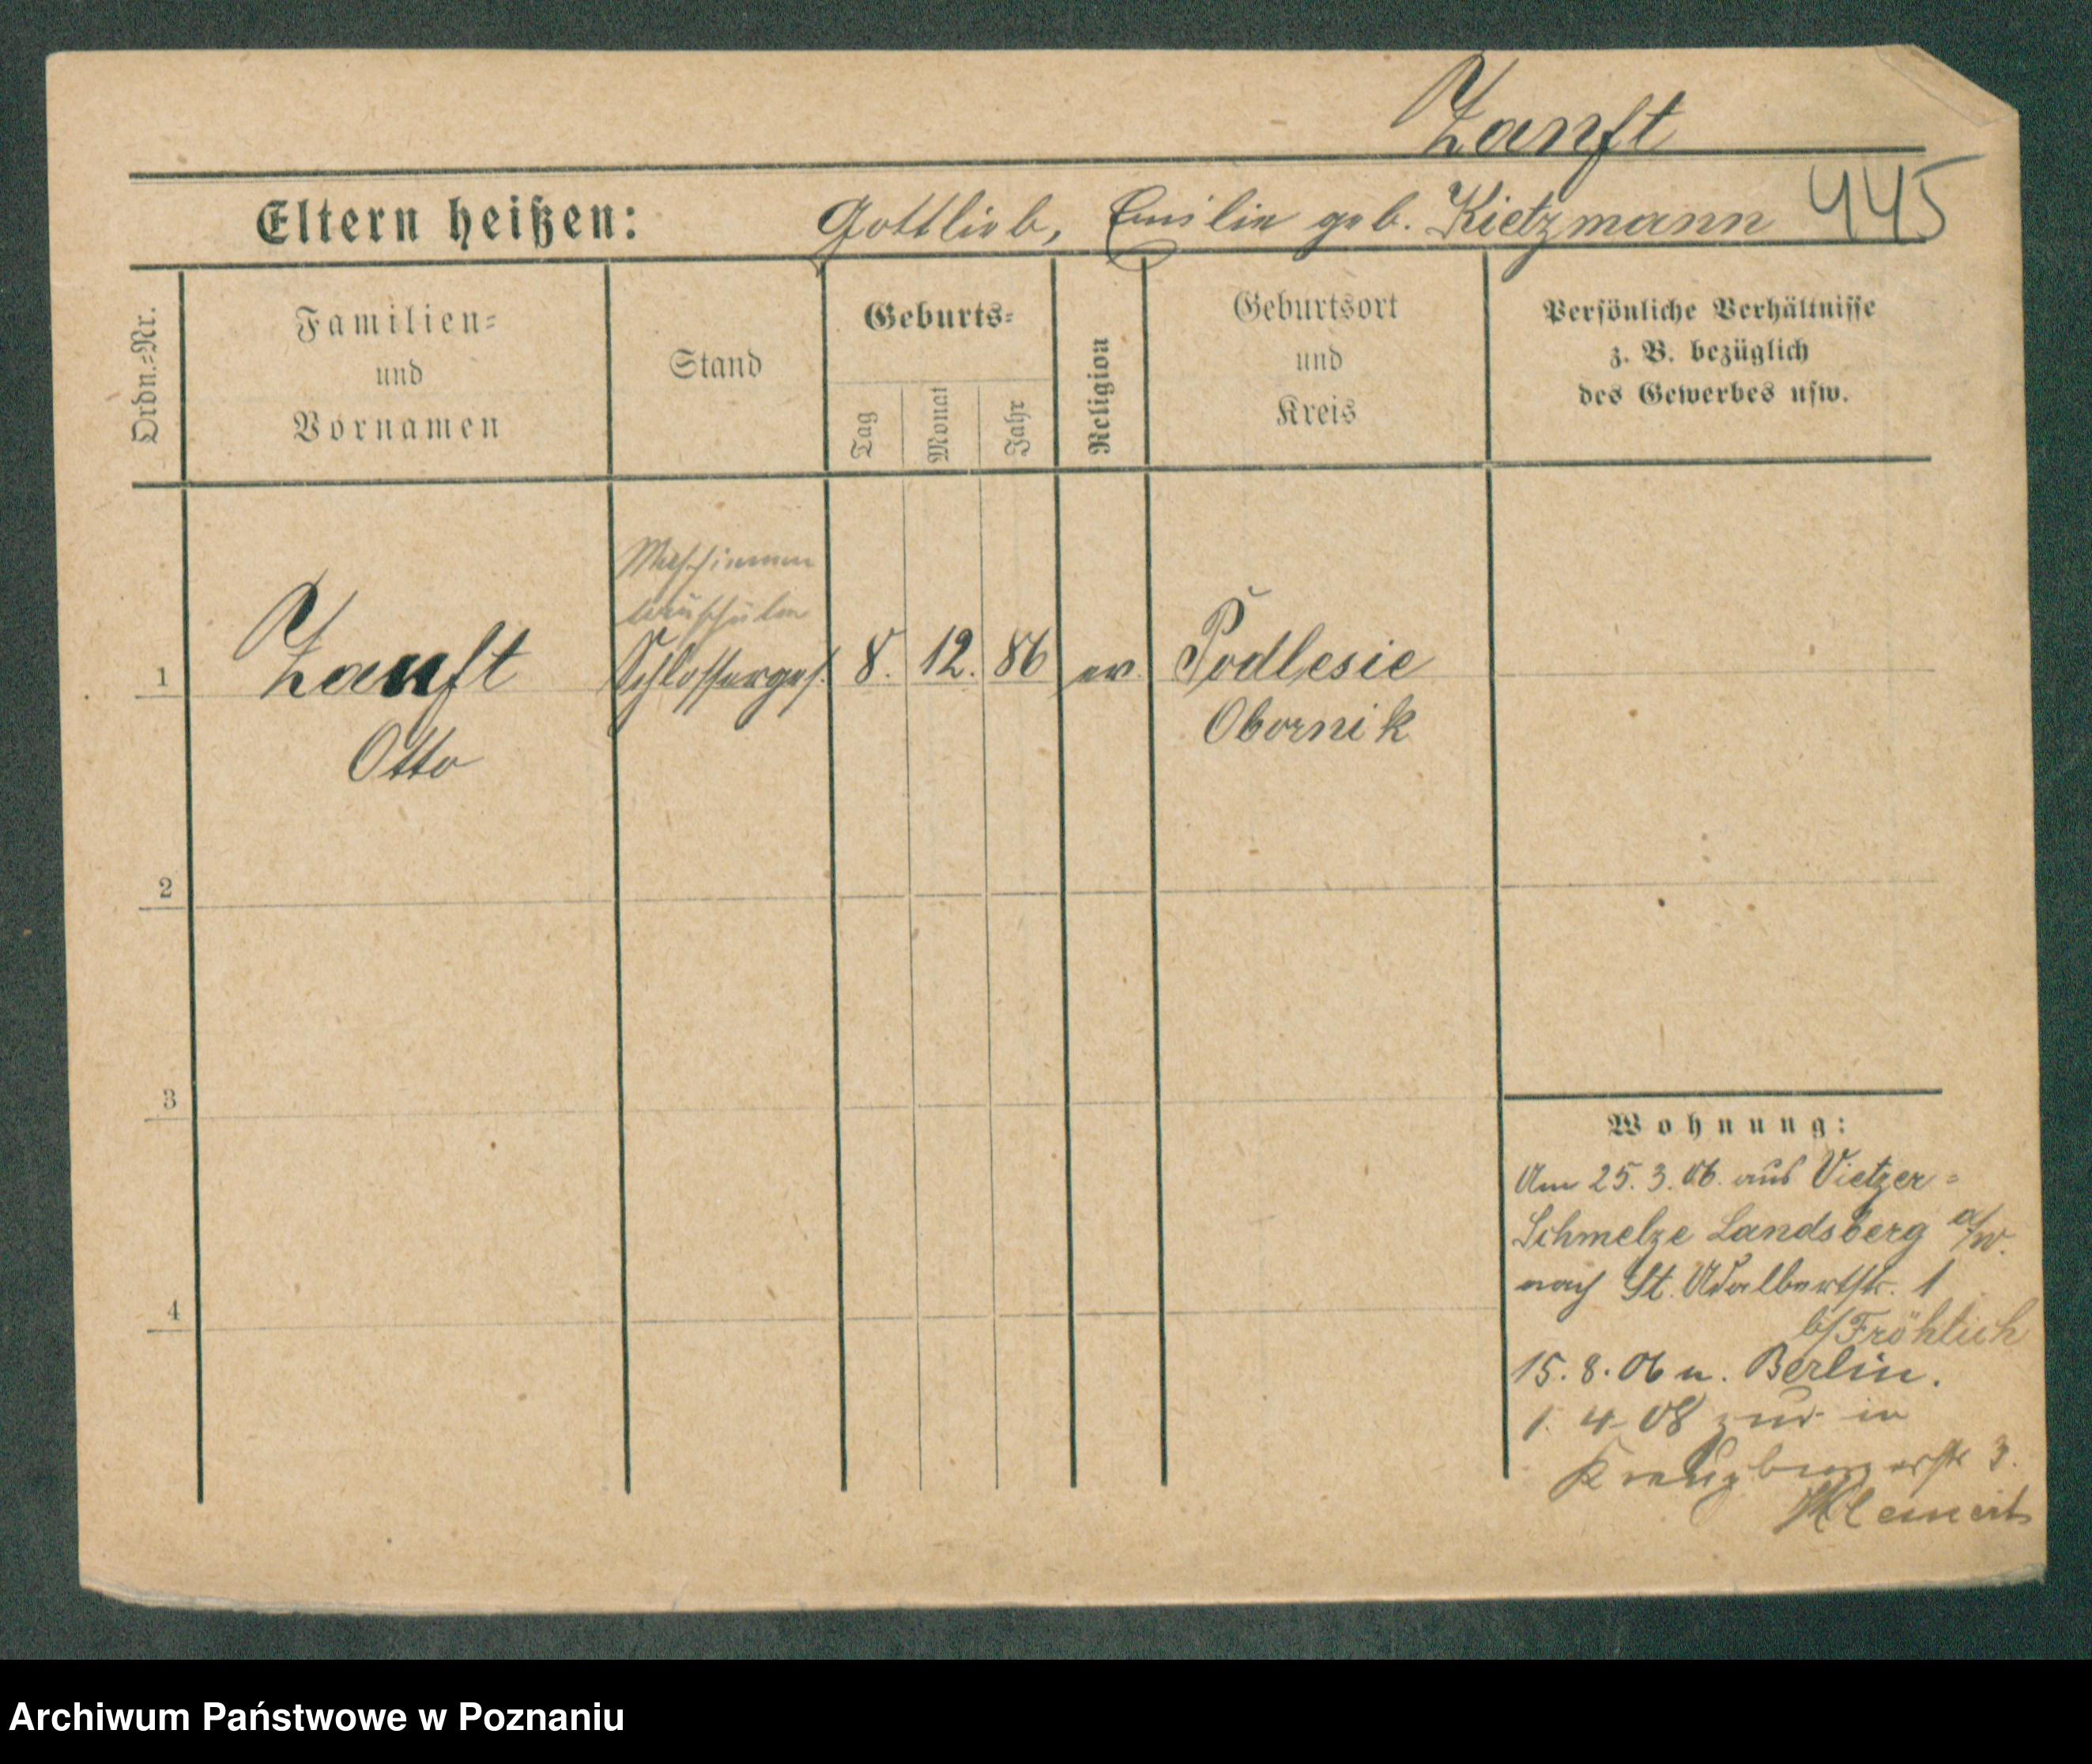 Zanft
445
Eltern heißen: Gottlieb, Emilie geb. Kietzmann
Ordn.=Nr.
Familien=
und
Vornamen
Stand
Geburts=
Tag
Monat
Jahr
Religion
Geburtsort
und
Kreis
Persönliche Verhältnisse
z. B. bezüglich
des Gewerbes usw.
Maschinen
bauschüler
1 Zanft Schlosserges. 8. 12. 86 ev. Podlesie
Otto Obornik
2
3
4
Wohnung:
Am 25.3.06. aus Vietzer=
Schmelze Landsberg a/W.
nach St. Adalbertstr. 1
b/Fröhlich
15.8.06 n. Berlin.
1.4.08 zur in
Kreuzburgerstr 3.
Archiwum Państwowe w Poznaniu